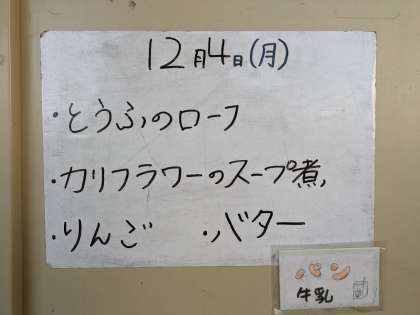 12月4日(月)
・とうふのローフ
・カリフラワーのスープ煮
・りんご ・バター
パン
牛乳